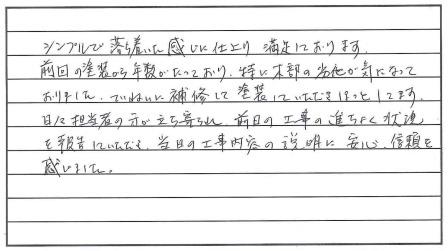 シンプルで落ち着いた感じに仕上り満足しております。
前回の塗装から年数がたっており、特に木部の劣化が気になって
おりました。ていねいに補修して塗装していただきほっとしてます。
日々担当者の方が立ち寄られ、前日の工事の進ちょく状況
を報告していただき、当日の工事内容の説明に安心、信頼を
感じました。